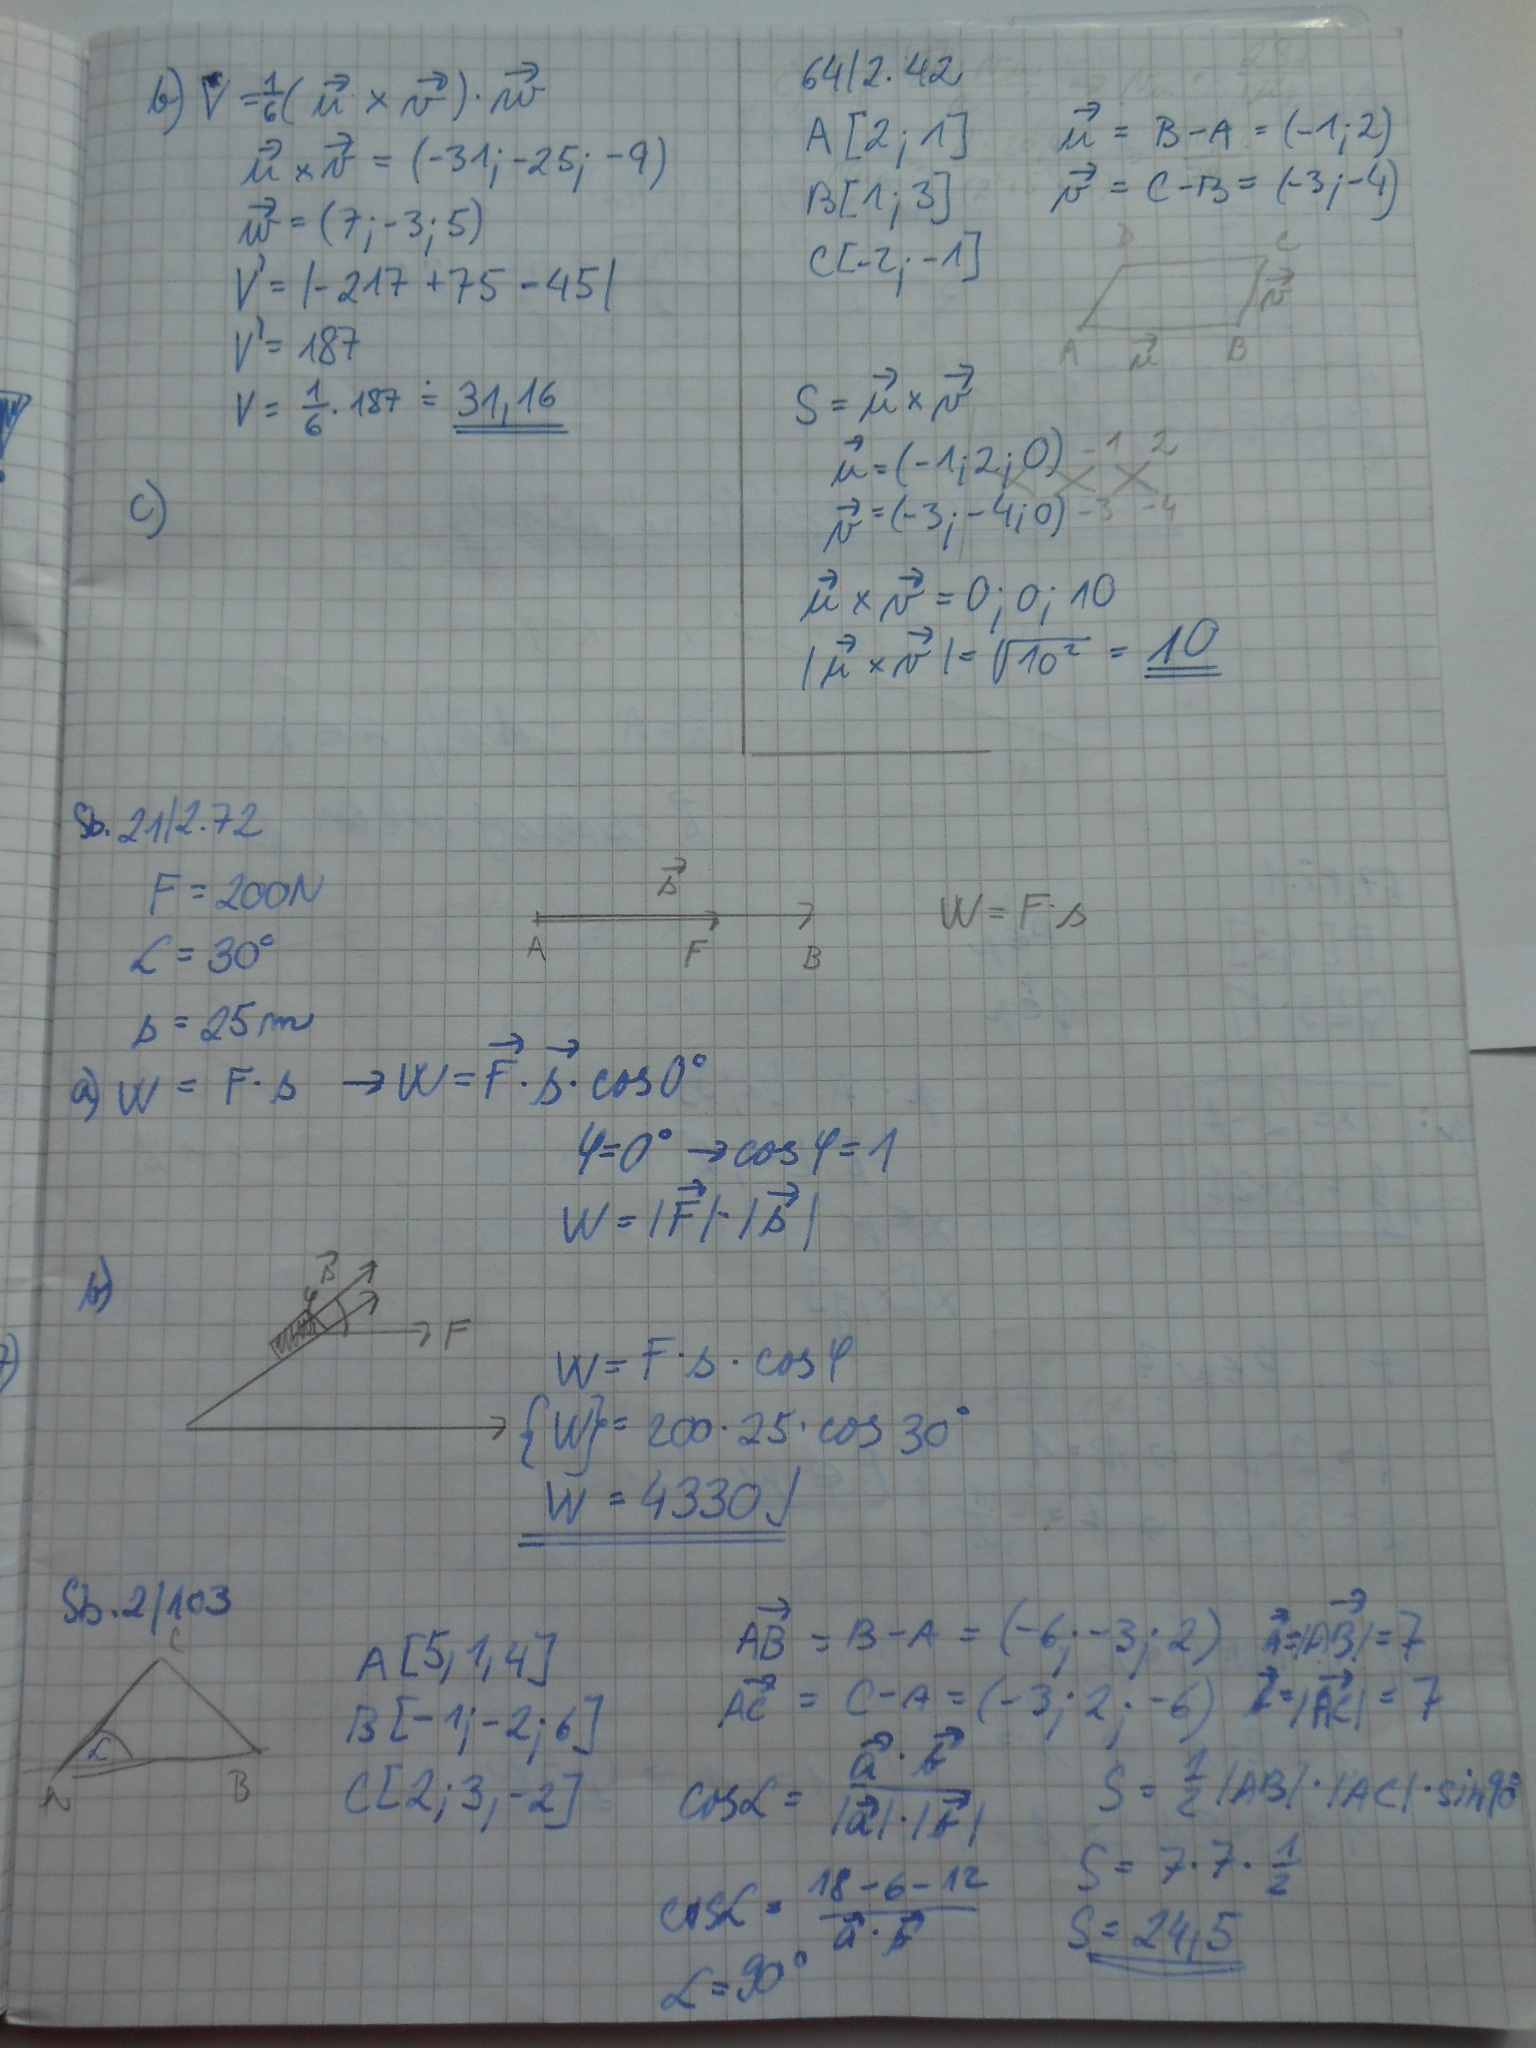 b) V = 1/6 (u⃗ × v⃗) · w⃗
u⃗ × v⃗ = (-31; -25; -9)
w⃗ = (7; -3; 5)
V' = |-217 + 75 - 45|
V' = 187
V = 1/6 · 187 ≐ 31,16
c)
64/2.42
A [2; 1]
B [1; 3]
C [-2; -1]
u⃗ = B - A = (-1; 2)
v⃗ = C - B = (-3; -4)
D C
v⃗
A u⃗ B
S = u⃗ × v⃗
u⃗ = (-1; 2; 0) -1 2
v⃗ = (-3; -4; 0) -3 -4
u⃗ × v⃗ = 0; 0; 10
|u⃗ × v⃗| = √10² = 10
Sb. 21/2.72
F = 200N
α = 30°
s = 25m
s⃗
A F B
W = F · s
a) W = F · s → W = F⃗ · s⃗ · cos 0°
φ = 0° → cos φ = 1
W = |F⃗| · |s⃗|
b)
s⃗
φ
F
W = F · s · cos φ
{W} = 200 · 25 · cos 30°
W = 4330 J
Sb. 2/103
C
α
A B
A [5, 1, 4]
B [-1; -2; 6]
C [2; 3, -2]
AB⃗ = B - A = (-6; -3; 2) a⃗ = |AB⃗| = 7
AC⃗ = C - A = (-3; 2; -6) b⃗ = |AC⃗| = 7
cos α = a⃗ · b⃗ / |a⃗| · |b⃗|
cos α = 18 - 6 - 12 / a⃗ · b⃗
α = 90°
S = 1/2 |AB| · |AC| · sin 90°
S = 7 · 7 · 1/2
S = 24,5